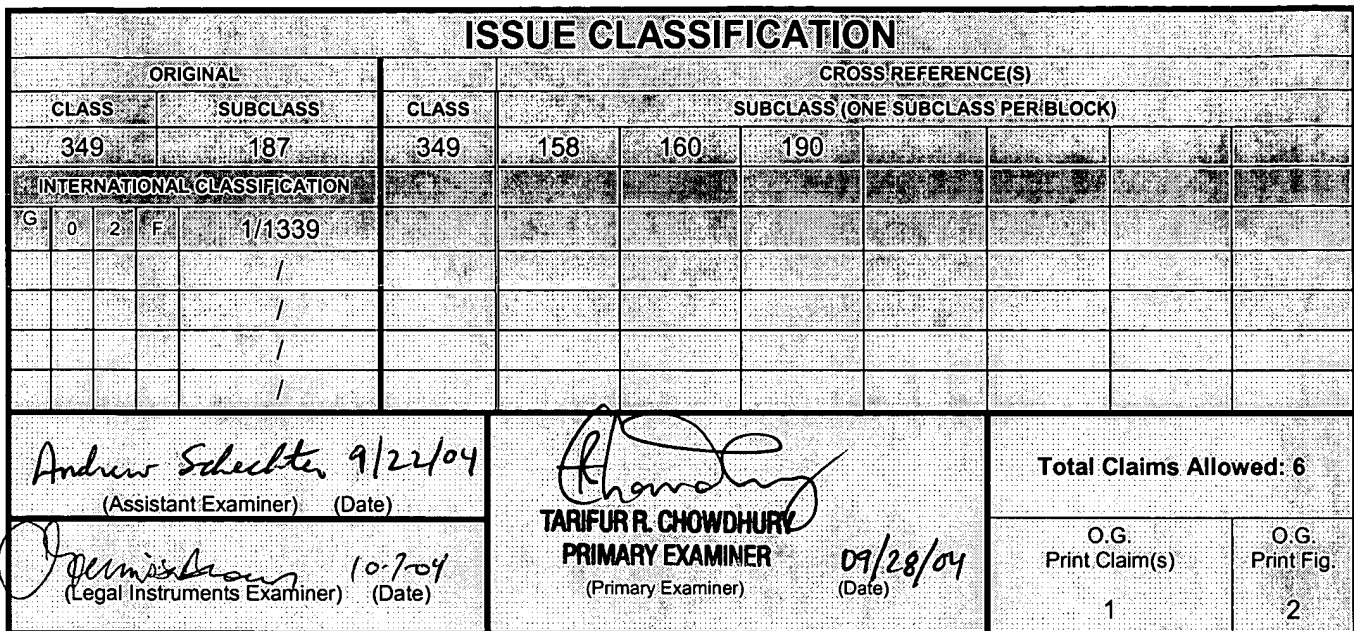 ISSUE CLASSIFICATION
ORIGINAL CROSS REFERENCE(S)
CLASS SUBCLASS CLASS SUBCLASS (ONE SUBCLASS PER BLOCK)
349 187 349 158 160 190
INTERNATIONAL CLASSIFICATION
G 0 2 F 1/1339
/
/
/
/
Andrew Schechter 9/22/04
(Assistant Examiner) (Date)
10-7-04
(Legal Instruments Examiner) (Date)
TARIFUR R. CHOWDHURY
PRIMARY EXAMINER 09/28/04
(Primary Examiner) (Date)
Total Claims Allowed: 6
O.G. Print Claim(s)
1
O.G. Print Fig.
2